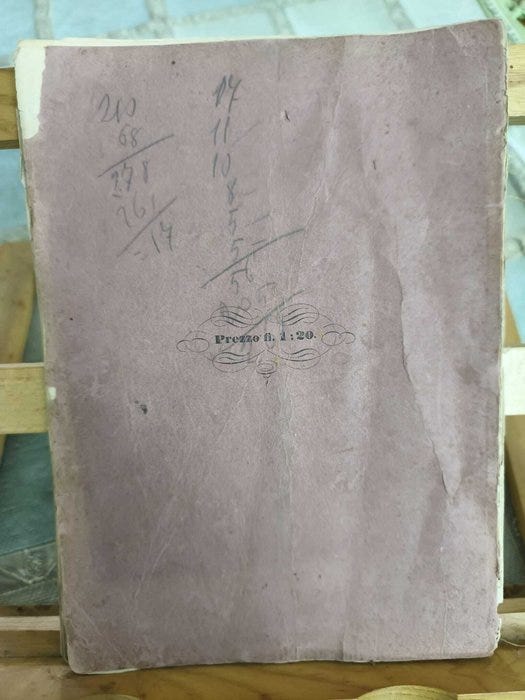 210
68
278
261
= 17
17
11
10
8
5
5
56
Prezzo fi. 1 : 20.